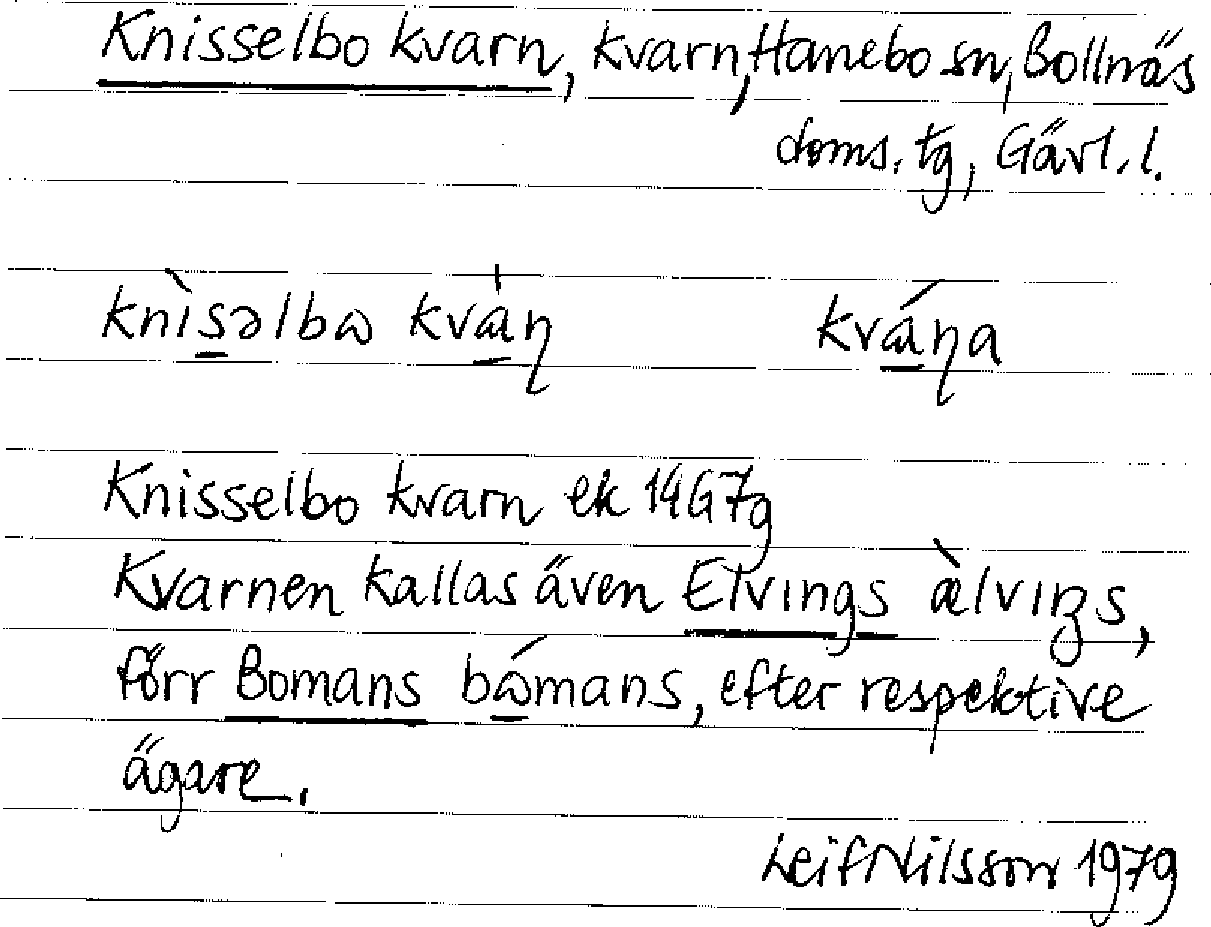 Knisselbo kvarn, kvarn, Hanebo sn, Bollnäs
doms. tg, Gävl. l.
knìsəlbɷ kvàɳ kváɳa
Knisselbo kvarn ek 14G7g
Kvarnen kallas även Elvings ælvıŋs,
förr Bomans bɷ́mans, efter respektive
ägare.
Leif Nilsson 1979